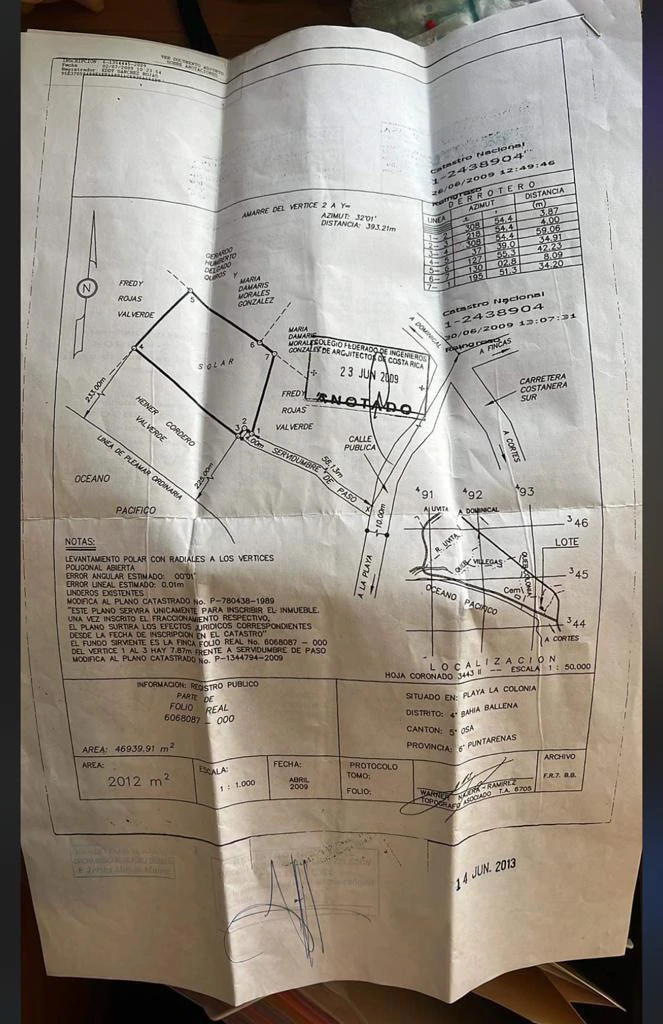 VER DOCUMENTO ADJUNTO
SOBRE ANOTACIONES
Catastro Nacional
1-2438904
26/06/2009 12:49:46
Reingreso
DERROTERO
LINEA
AZIMUT
DISTANCIA
(m)
308 54.4 3.87
218 54.4 4.00
308 54.4 59.06
37 39.0 34.91
127 55.3 42.23
130 02.8 8.09
195 51.3 34.20
Catastro Nacional
1-2438904
13:07:31
Reingreso
AMARRE DEL VERTICE 2 A Y=
AZIMUT: 32°01'
DISTANCIA: 393.21m
N
FREDY
ROJAS
VALVERDE
GERARDO
HUMBERTO
DELGADO
QUIROS Y
MARIA
DAMARIS
MORALES
GONZALEZ
MARIA
DAMARIS
MORALES
GONZALEZ
COLEGIO FEDERADO DE INGENIEROS
Y DE ARQUITECTOS DE COSTA RICA
23 JUN 2009
ANOTADO
A DOMINICAL
A FINCAS
CARRETERA
COSTANERA
SUR
A CORTES
5
4
6
7
SOLAR
FREDY
ROJAS
VALVERDE
CALLE
PUBLICA
233.00m
HEINER CORDERO
VALVERDE
3
2
1
SERVIDUMBRE DE PASO
LINEA DE PLEAMAR ORDINARIA
OCEANO
PACIFICO
10.00m
A LA PLAYA
491
492
493
A UVITA
A DOMINICAL
R. UVITA
QUEB. VILLEGAS
LOTE
346
345
344
OCEANO PACIFICO
A CORTES
LOCALIZACION
HOJA CORONADO 3443 II -- ESCALA 1 : 50.000
NOTAS:
LEVANTAMIENTO POLAR CON RADIALES A LOS VERTICES
POLIGONAL ABIERTA
ERROR ANGULAR ESTIMADO: 00°01'
ERROR LINEAL ESTIMADO: 0.01m
LINDEROS EXISTENTES
MODIFICA AL PLANO CATASTRADO No. P-780438-1989
"ESTE PLANO SERVIRA UNICAMENTE PARA INSCRIBIR EL INMUEBLE.
UNA VEZ INSCRITO EL FRACCIONAMIENTO RESPECTIVO,
EL PLANO SURTIRA LOS EFECTOS JURIDICOS CORRESPONDIENTES
DESDE LA FECHA DE INSCRIPCION EN EL CATASTRO"
EL FUNDO SIRVIENTE ES LA FINCA FOLIO REAL No. 6068087 - 000
DEL VERTICE 1 AL 3 HAY 7.87m FRENTE A SERVIDUMBRE DE PASO
MODIFICA AL PLANO CATASTRADO No. P-1344794-2009
INFORMACION: REGISTRO PUBLICO
PARTE DE
FOLIO REAL
6068087 - 000
AREA: 46939.91 m²
SITUADO EN: PLAYA LA COLONIA
DISTRITO: 4° BAHIA BALLENA
CANTON: 5° OSA
PROVINCIA: 6° PUNTARENAS
AREA:
2012 m²
ESCALA:
1 : 1.000
FECHA:
ABRIL
2009
PROTOCOLO
TOMO:
FOLIO:
WARNER NAJERA - RAMIREZ
TOPOGRAFO ASOCIADO T.A. 6705
ARCHIVO
F.R.7. B.B.
14 JUN. 2013